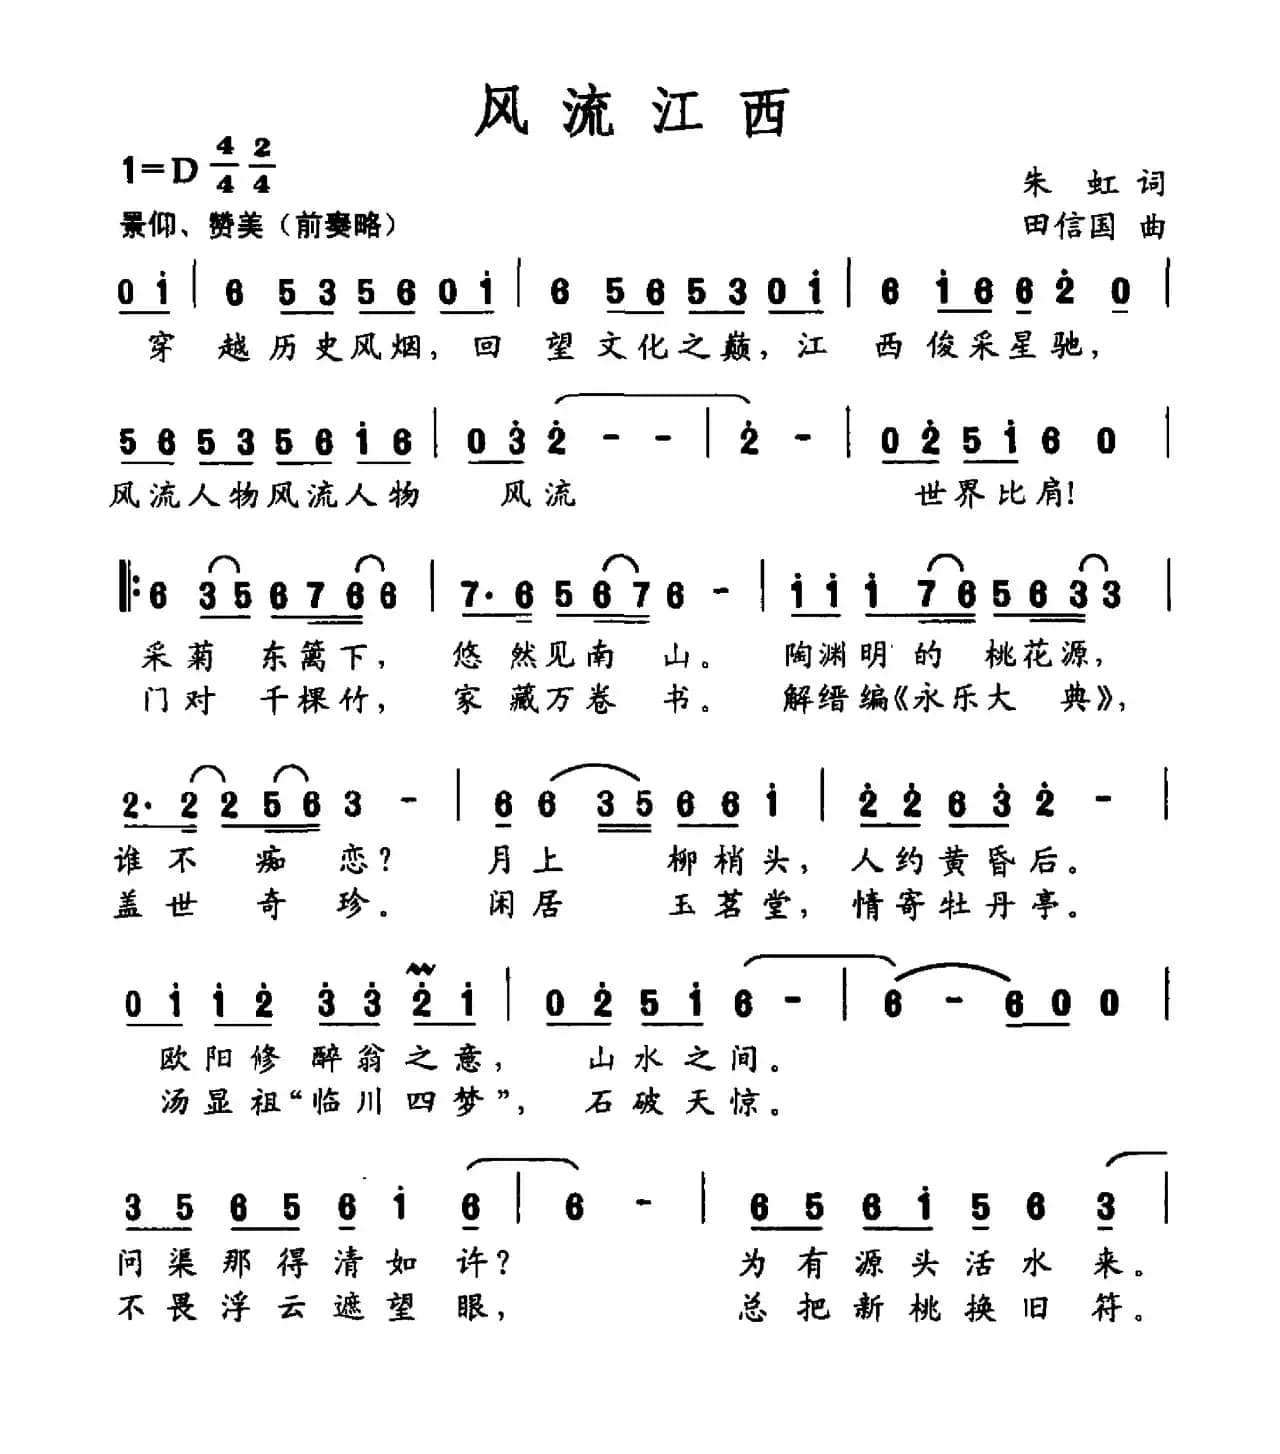 风流江西
1=D 4/4 2/4
朱 虹 词
景仰、赞美（前奏略）
田信国 曲
0 1 | 6 5 3 5 6 0 1 | 6 5 6 5 3 0 1 | 6 1 6 6 2 0 |
穿 越历史风烟，回 望文化之巅，江 西俊采星驰，
5 6 5 3 5 6 1 6 | 0 3 2 - - | 2 - | 0 2 5 1 6 0 |
风流人物风流人物 风流 世界比肩！
6 3 5 6 7 6 6 | 7· 6 5 6 7 6 - | 1 1 1 7 6 5 6 3 3 |
采菊 东篱下， 悠然见南 山。 陶渊明的 桃花源，
门对 千棵竹， 家藏万卷 书。 解缙编《永乐大 典》，
2· 2 2 5 6 3 - | 6 6 3 5 6 6 1 | 2 2 6 3 2 - |
谁不 痴 恋？ 月上 柳梢头，人约黄昏后。
盖世 奇 珍。 闲居 玉茗堂，情寄牡丹亭。
0 1 1 2 3 3 2 1 | 0 2 5 1 6 - | 6 - 6 0 0 |
欧阳修 醉翁之意， 山水之间。
汤显祖“临川四梦”， 石破天惊。
3 5 6 5 6 1 6 | 6 - | 6 5 6 1 5 6 3 |
问渠那得清如 许？ 为有源头活水 来。
不畏浮云遮望 眼， 总把新桃换旧 符。